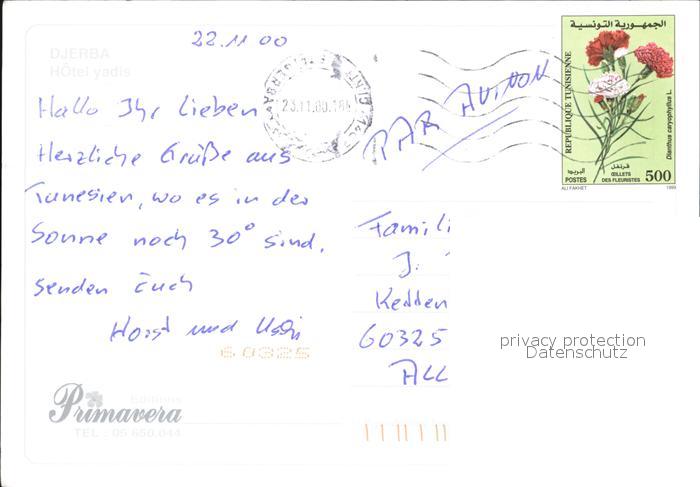 22.11 00
DJERBA
HÔtel yadis
Hallo Ihr Lieben
Herzliche Grüße aus
Tunesien, wo es in der
Sonne noch 30° sind,
senden Euch
Horst und
60325
Editions
Primavera
TEL : 05 650.044
23.11.00
PAR AVION
الجمهورية التونسية
REPUBLIQUE TUNISIENNE
Dianthus caryophyllus L.
البريد
POSTES
قرنفل
ŒILLETS
DES FLEURISTES
500
ALI FAKHET
1999
Famili
J.
Kedden
60325
ALL
privacy protection
Datenschutz